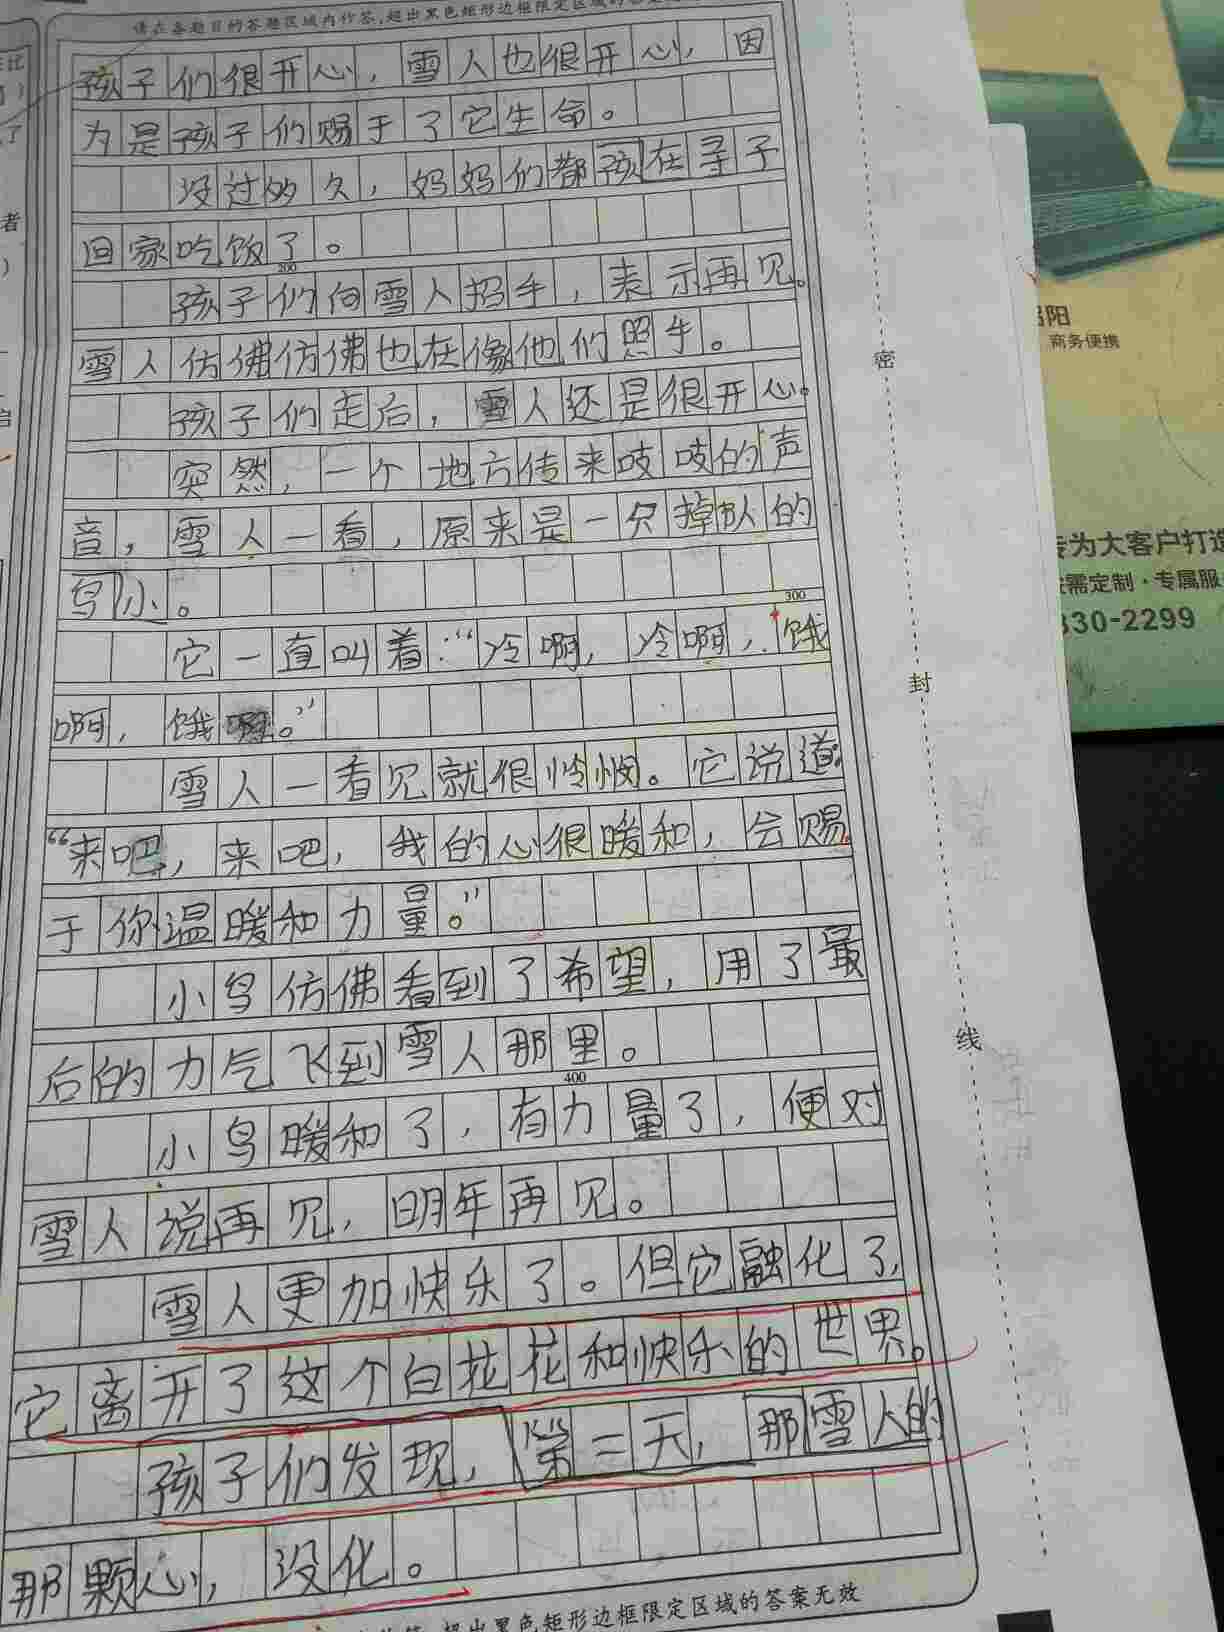 请在各题目的答题区域内作答,超出黑色矩形边框限定区域的答案无效
孩子们很开心，雪人也很开心，因
为是孩子们赐于了它生命。
没过多久，妈妈们都孩在寻子
回家吃饭了。
200
孩子们向雪人招手，表示再见。
雪人仿佛仿佛也在像他们照手。
孩子们走后，雪人还是很开心。
突然，一个地方传来吱吱的声
音，雪人一看，原来是一只掉队的
鸟小。
300
它一直叫着：“冷啊，冷啊，饿
啊，饿啊。”
雪人一看见就很怜悯。它说道：
“来吧，来吧，我的心很暖和，会赐
于你温暖和力量。”
小鸟仿佛看到了希望，用了最
后的力气飞到雪人那里。
400
小鸟暖和了，有力量了，便对
雪人说再见，明年再见。
雪人更加快乐了。但它融化了，
它离开了这个白花花和快乐的世界。
孩子们发现，第二天，那雪人的
那颗心，没化。
超出黑色矩形边框限定区域的答案无效
密
封
线
者
商务便携
专为大客户打造
需定制·专属服
330-2299